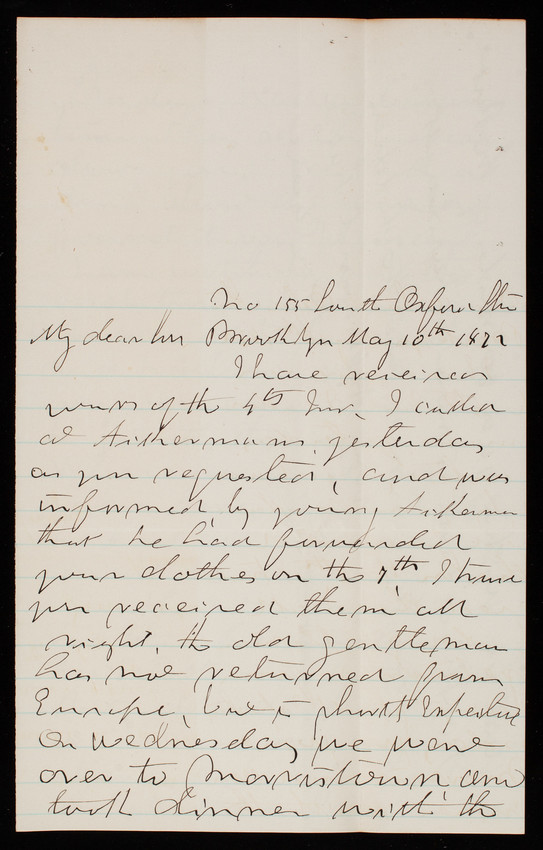 No 155 South Oxford Str
My dear Sir Brooklyn May 10th 1872
I have received
yours of the 4th Inst. I called
at Ackermans yesterday
as you requested, and was
informed, by young Ackerman
that he had forwarded
your clothes on the 7th, I trust
you received them all
right, the old gentleman
has not returned from
Europe, but is shortly Expected
On Wednesday we were
over to Morristown and
took dinner with the